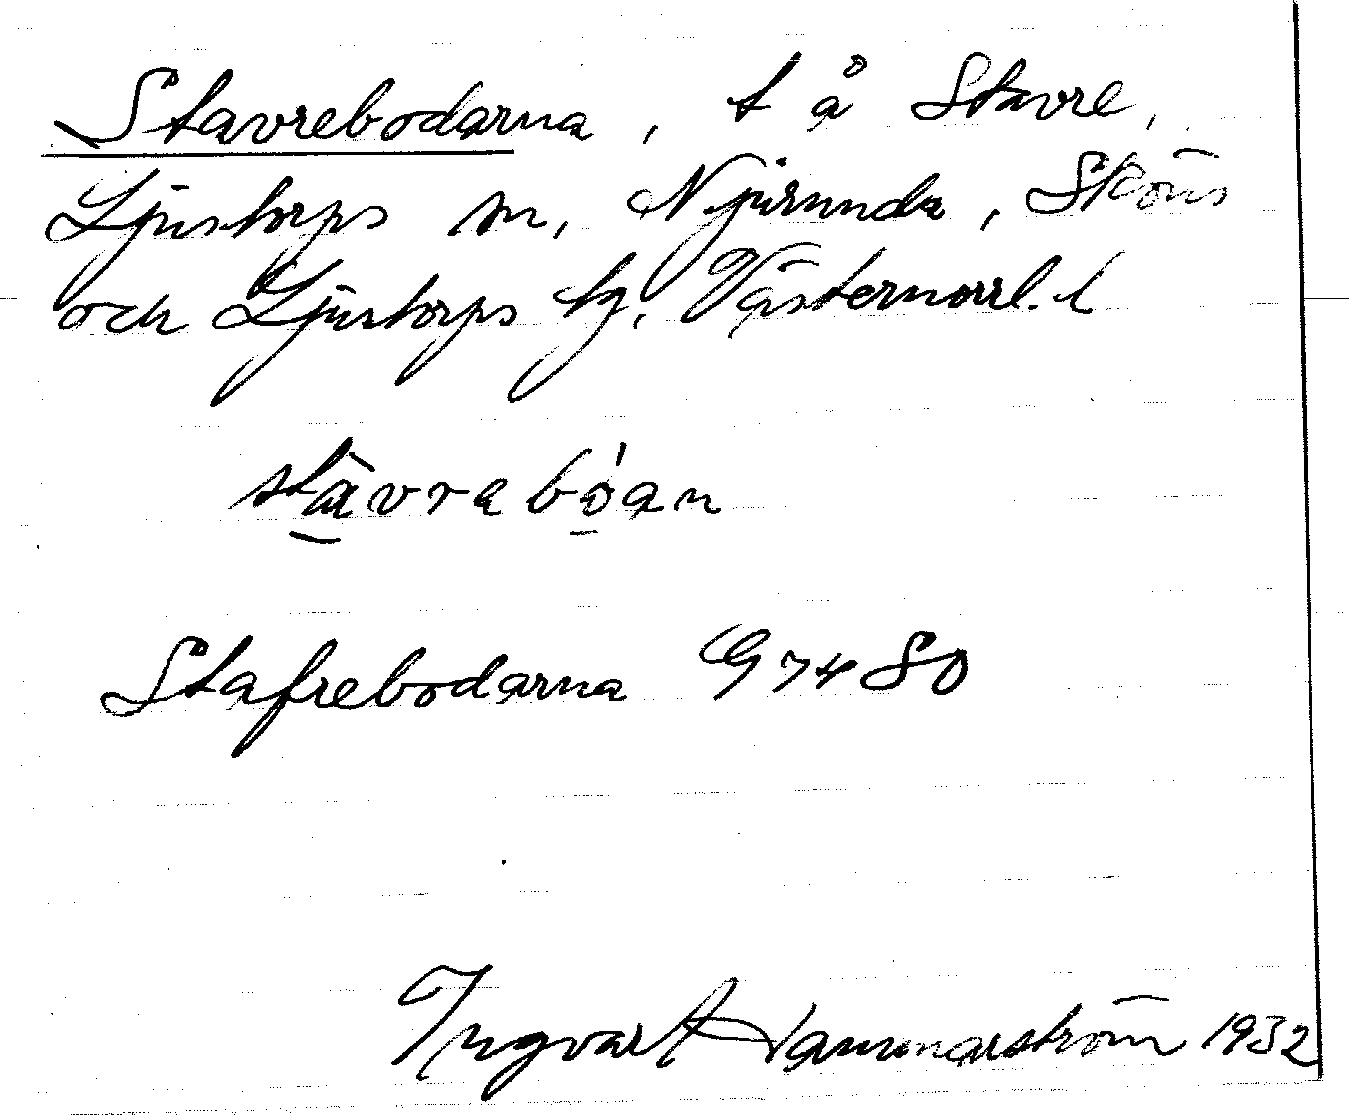 Stavrebodarna, t å Stavre,
Ljustorps sn, Njurunda, Sköns
och Ljustorps tg, Västernorrl. l
stàvrabóan
Stafrebodarna G 74 SO
Ingvar Hammarström 1932